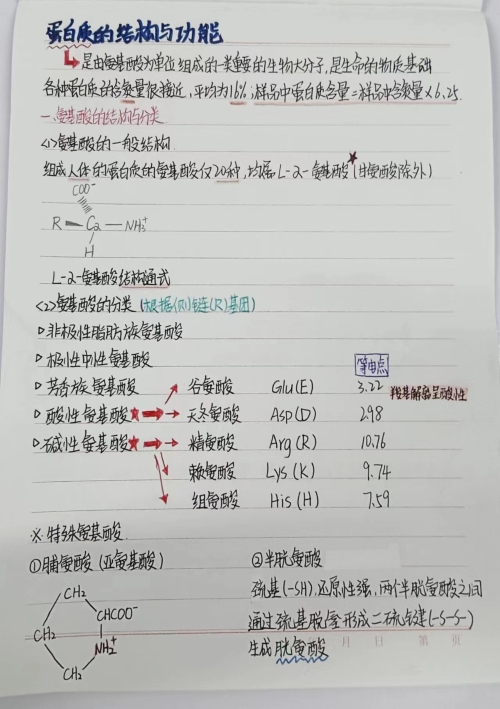 蛋白质的结构与功能
是由氨基酸为单位组成的一类重要的生物大分子,是生命的物质基础
各种蛋白质的含氮量很接近,平均为16%,样品中蛋白质含量=样品中含氮量×6.25
一.氨基酸的结构与分类
<1>氨基酸的一般结构
组成人体的蛋白质的氨基酸仅20种,均属L-2-氨基酸★(甘氨酸除外)
COO⁻
R C2 NH3⁺
H
L-2-氨基酸结构通式
<2>氨基酸的分类(根据侧链(R)基团)
▷非极性脂肪族氨基酸
▷极性中性氨基酸 等电点
▷芳香族氨基酸 谷氨酸 Glu(E) 3.22 羧基解离呈酸性
▷酸性氨基酸★ → 天冬氨酸 Asp(D) 2.98
▷碱性氨基酸★ → 精氨酸 Arg(R) 10.76
赖氨酸 Lys(K) 9.74
组氨酸 His(H) 7.59
※特殊氨基酸
①脯氨酸(亚氨基酸)
CH2
CHCOO⁻
CH2
NH2⁺
CH2
②半胱氨酸
巯基(-SH),还原性强,两个半胱氨酸之间
通过巯基脱氢形成二硫键(-S-S-)
生成胱氨酸
月 日 第 页